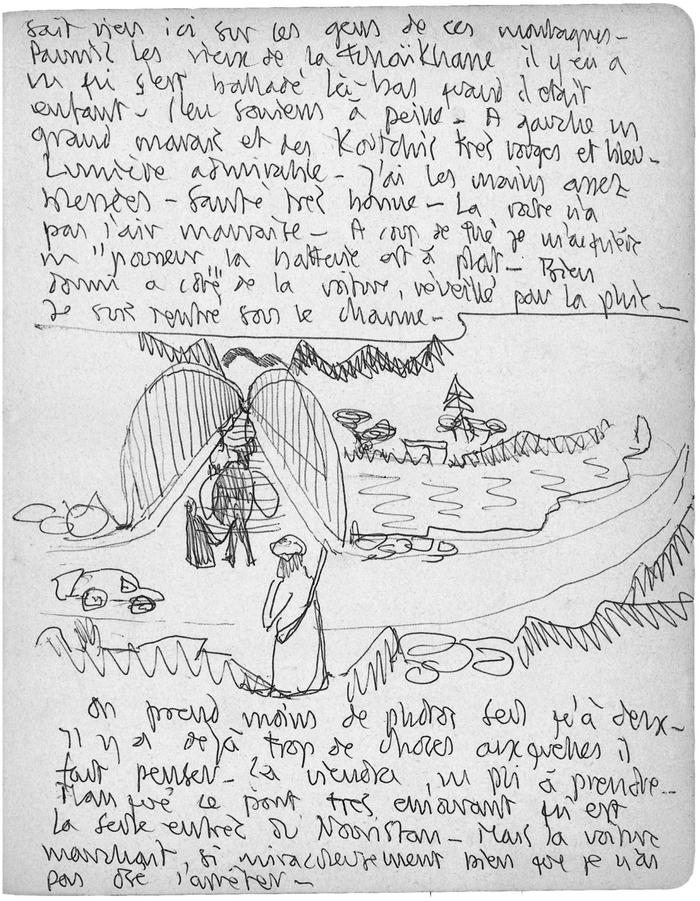 sait rien ici sur les gens de ces montagnes –
Parmi les vieux de la tchaïkhane il y en a
un qui s'est balladé là-bas quand il était
enfant – s'en souviens à peine – A gauche un
grand marais et des Koutchis très rouges et bleu –
Lumière admirable – J'ai les mains assez
blessées – Santé très bonne – La route n'a
pas l'air mauvaise – A coup de thé je m'acquière
un "pousseur", la batterie est à plat – Bien
dormi à côté de la voiture, réveillé par la pluie –
Je suis rentré sous le chaume –
On prend moins de photos seul qu'à deux –
Il y a déjà trop de choses auxquelles il
faut penser – Ca viendra, un pli à prendre –
Manqué ce pont très émouvant qui est
la seule entrée du Nooristan – Mais la voiture
marchait, si miraculeusement bien que je n'ai
pas osé l'arrêter –